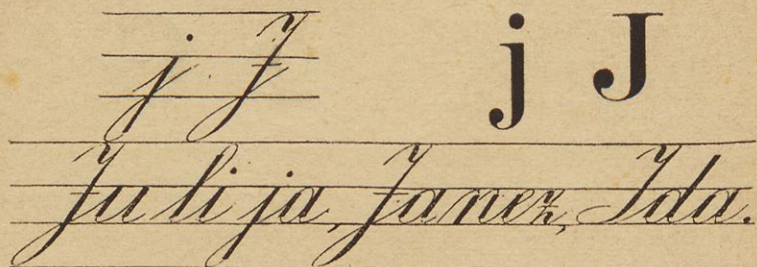 j J j J
Julija, Janez, Ida.